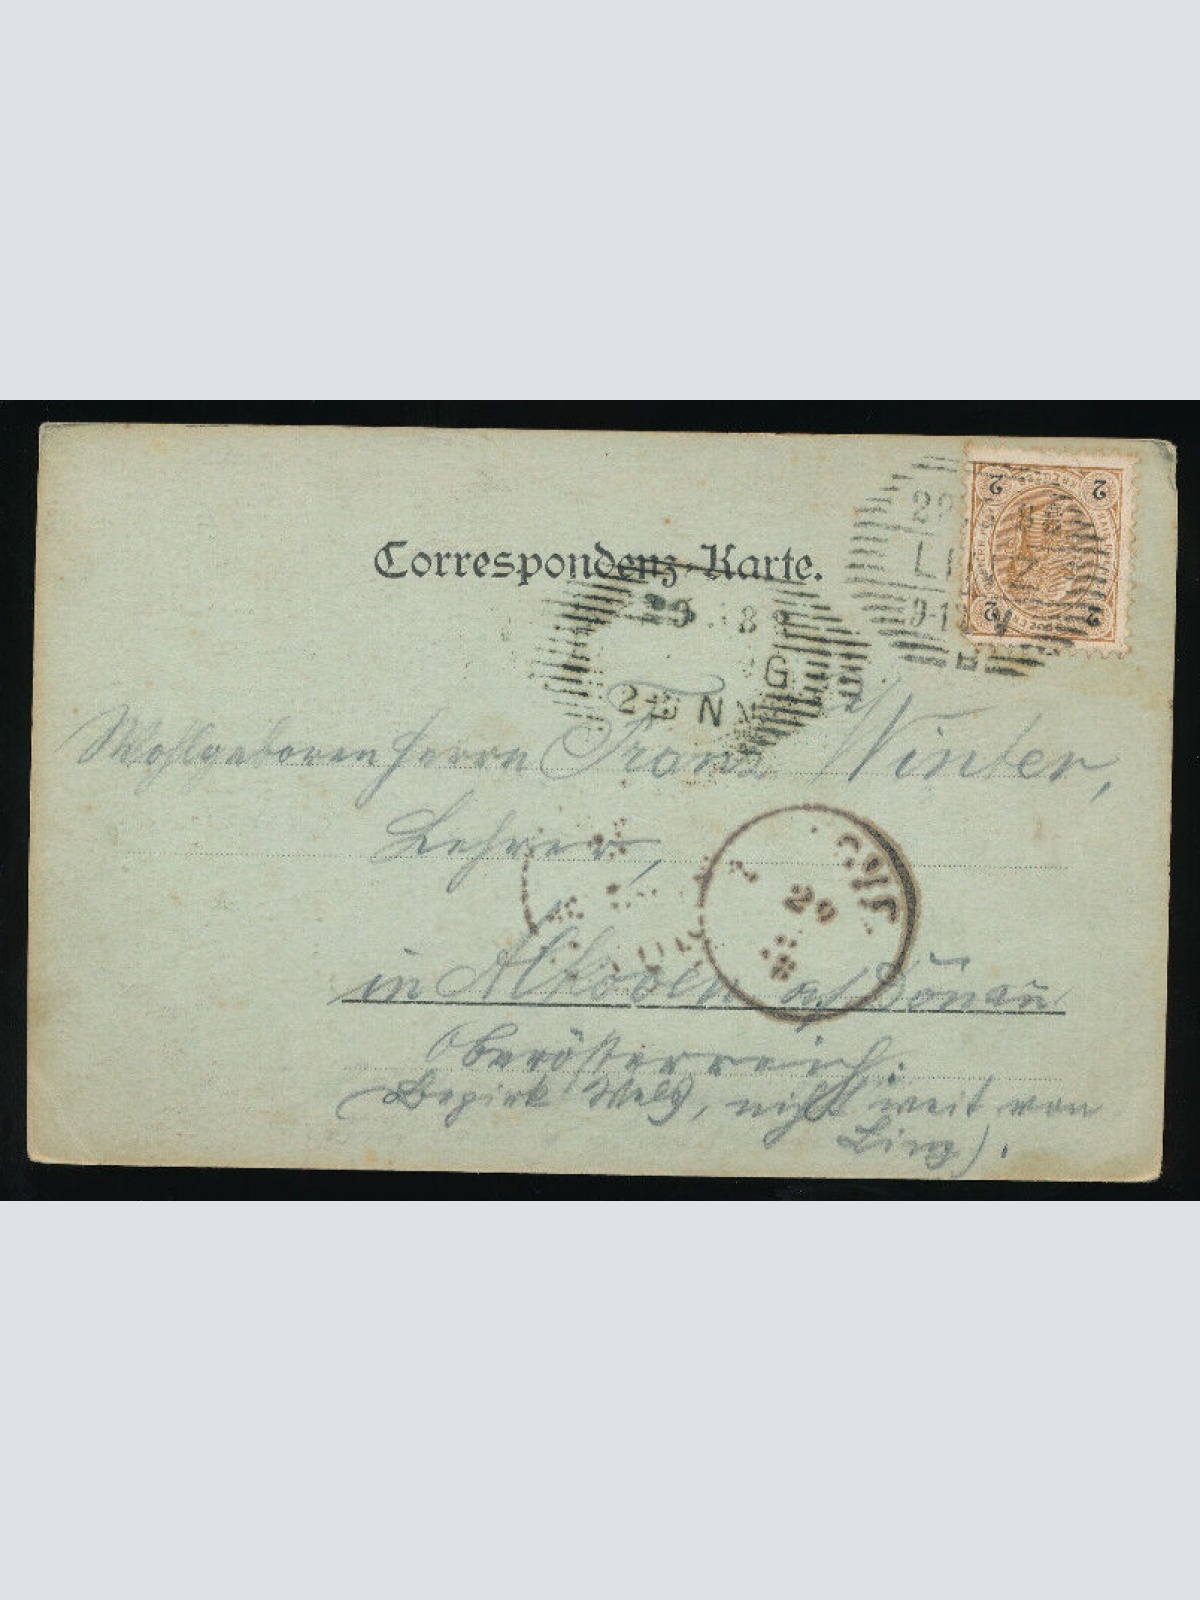 Correspondenz-Karte.
29. 8 9
G
2-3 N
29
LI
9-12
2 2
2 2
Wohlgeboren Herrn Franz Winter,
Lehrer,
29
in Alkoven a/Donau
Oberösterreich.
(Bezirk Wels, nicht weit von
Linz).